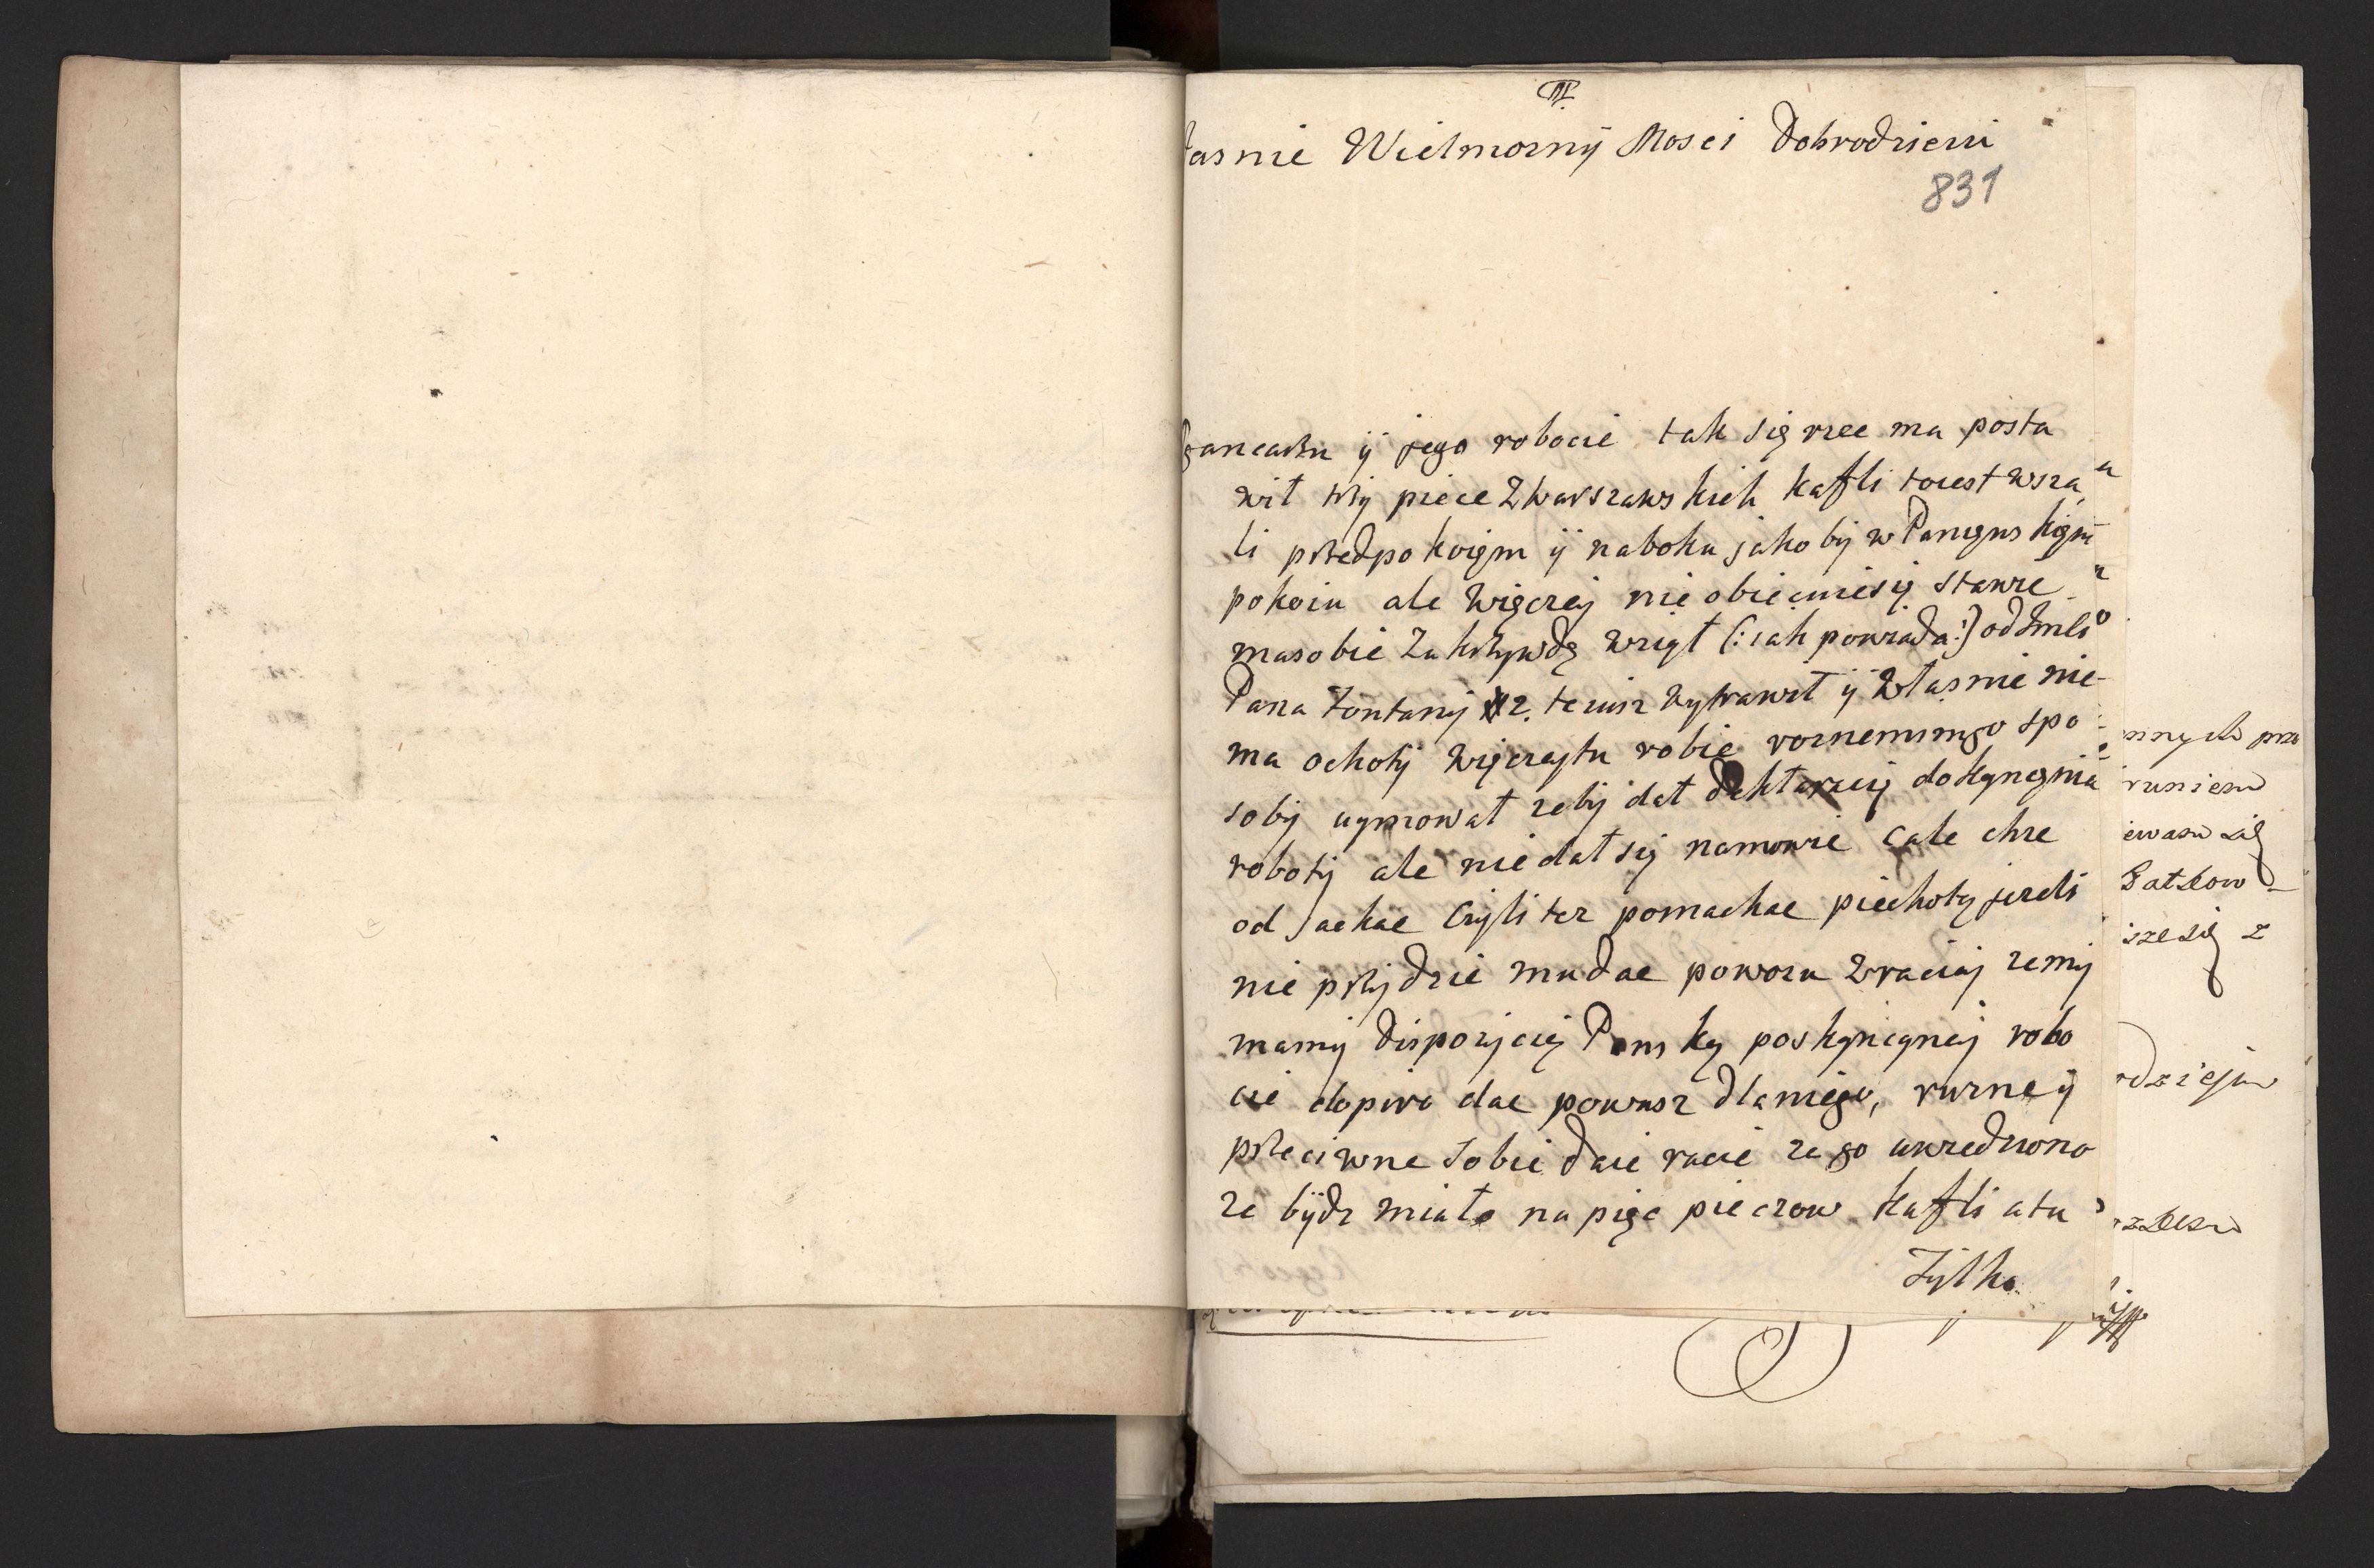 Jasnie Wielmozny Mosci Dobrodzieiu
831
Gancarzu ÿ jego robocie tak się rzec ma posta
wił trzÿ piece z warszawskich kafli toiest w sza
li przedpokoigm ÿ naboku jakobÿ w Panęnskigm
pokoiu ale więczeÿ nie obiecuiesię stawic
masobie za krzywdę wziąt (: iak powiada :) od Jmśi
Pana Fontanÿ 2. terusz wytrawił ÿ własnie nie
ma ochotÿ więcey tu robic roznemimgo spo
sobÿ uymowal zebÿ dał deklaracię dokączęnia
robotÿ ale nie dał się namowic cale chce
od jachac czyli tez pomachac piechotą jezeli
nie przÿdzie mu dac powozu zraciaj ze mÿ
mamÿ dispozycię Panską poskąncząnej robo
cie dopiro dac powusz dlaniego, rurne ÿ
przeciwne sobie daie racie ze go uwzedziono
ze bÿdz miało na pięc piecow kafli a tu
Tylko
nnych prze
runiem
iewasu się
Gatkow
isze się z
odzieju